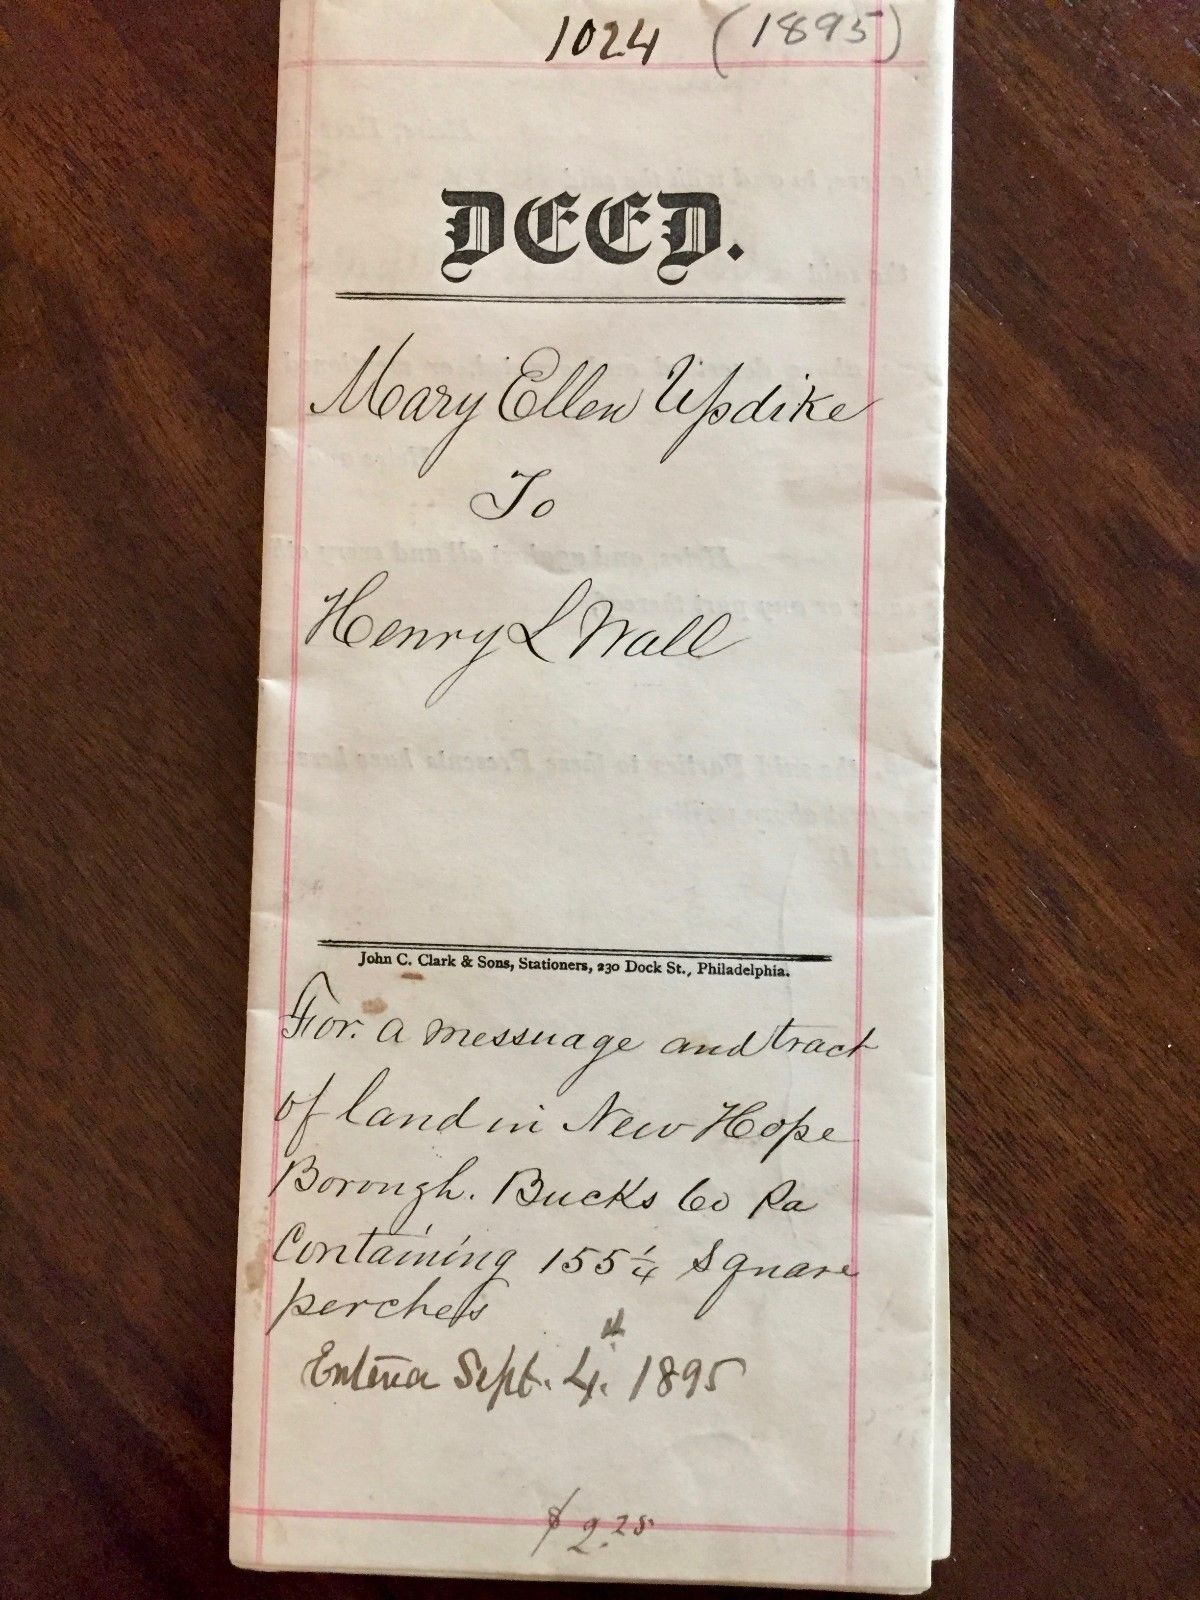 1024 (1895)
DEED.
Mary Ellen Updike
To
Henry L Wall
John C. Clark & Sons, Stationers, 230 Dock St., Philadelphia.
For. a messuage and tract
of land in New Hope
Borough. Bucks Co Pa
Containing 155 1/4 Square
perches
Entered Sept. 4th. 1895
$2.25